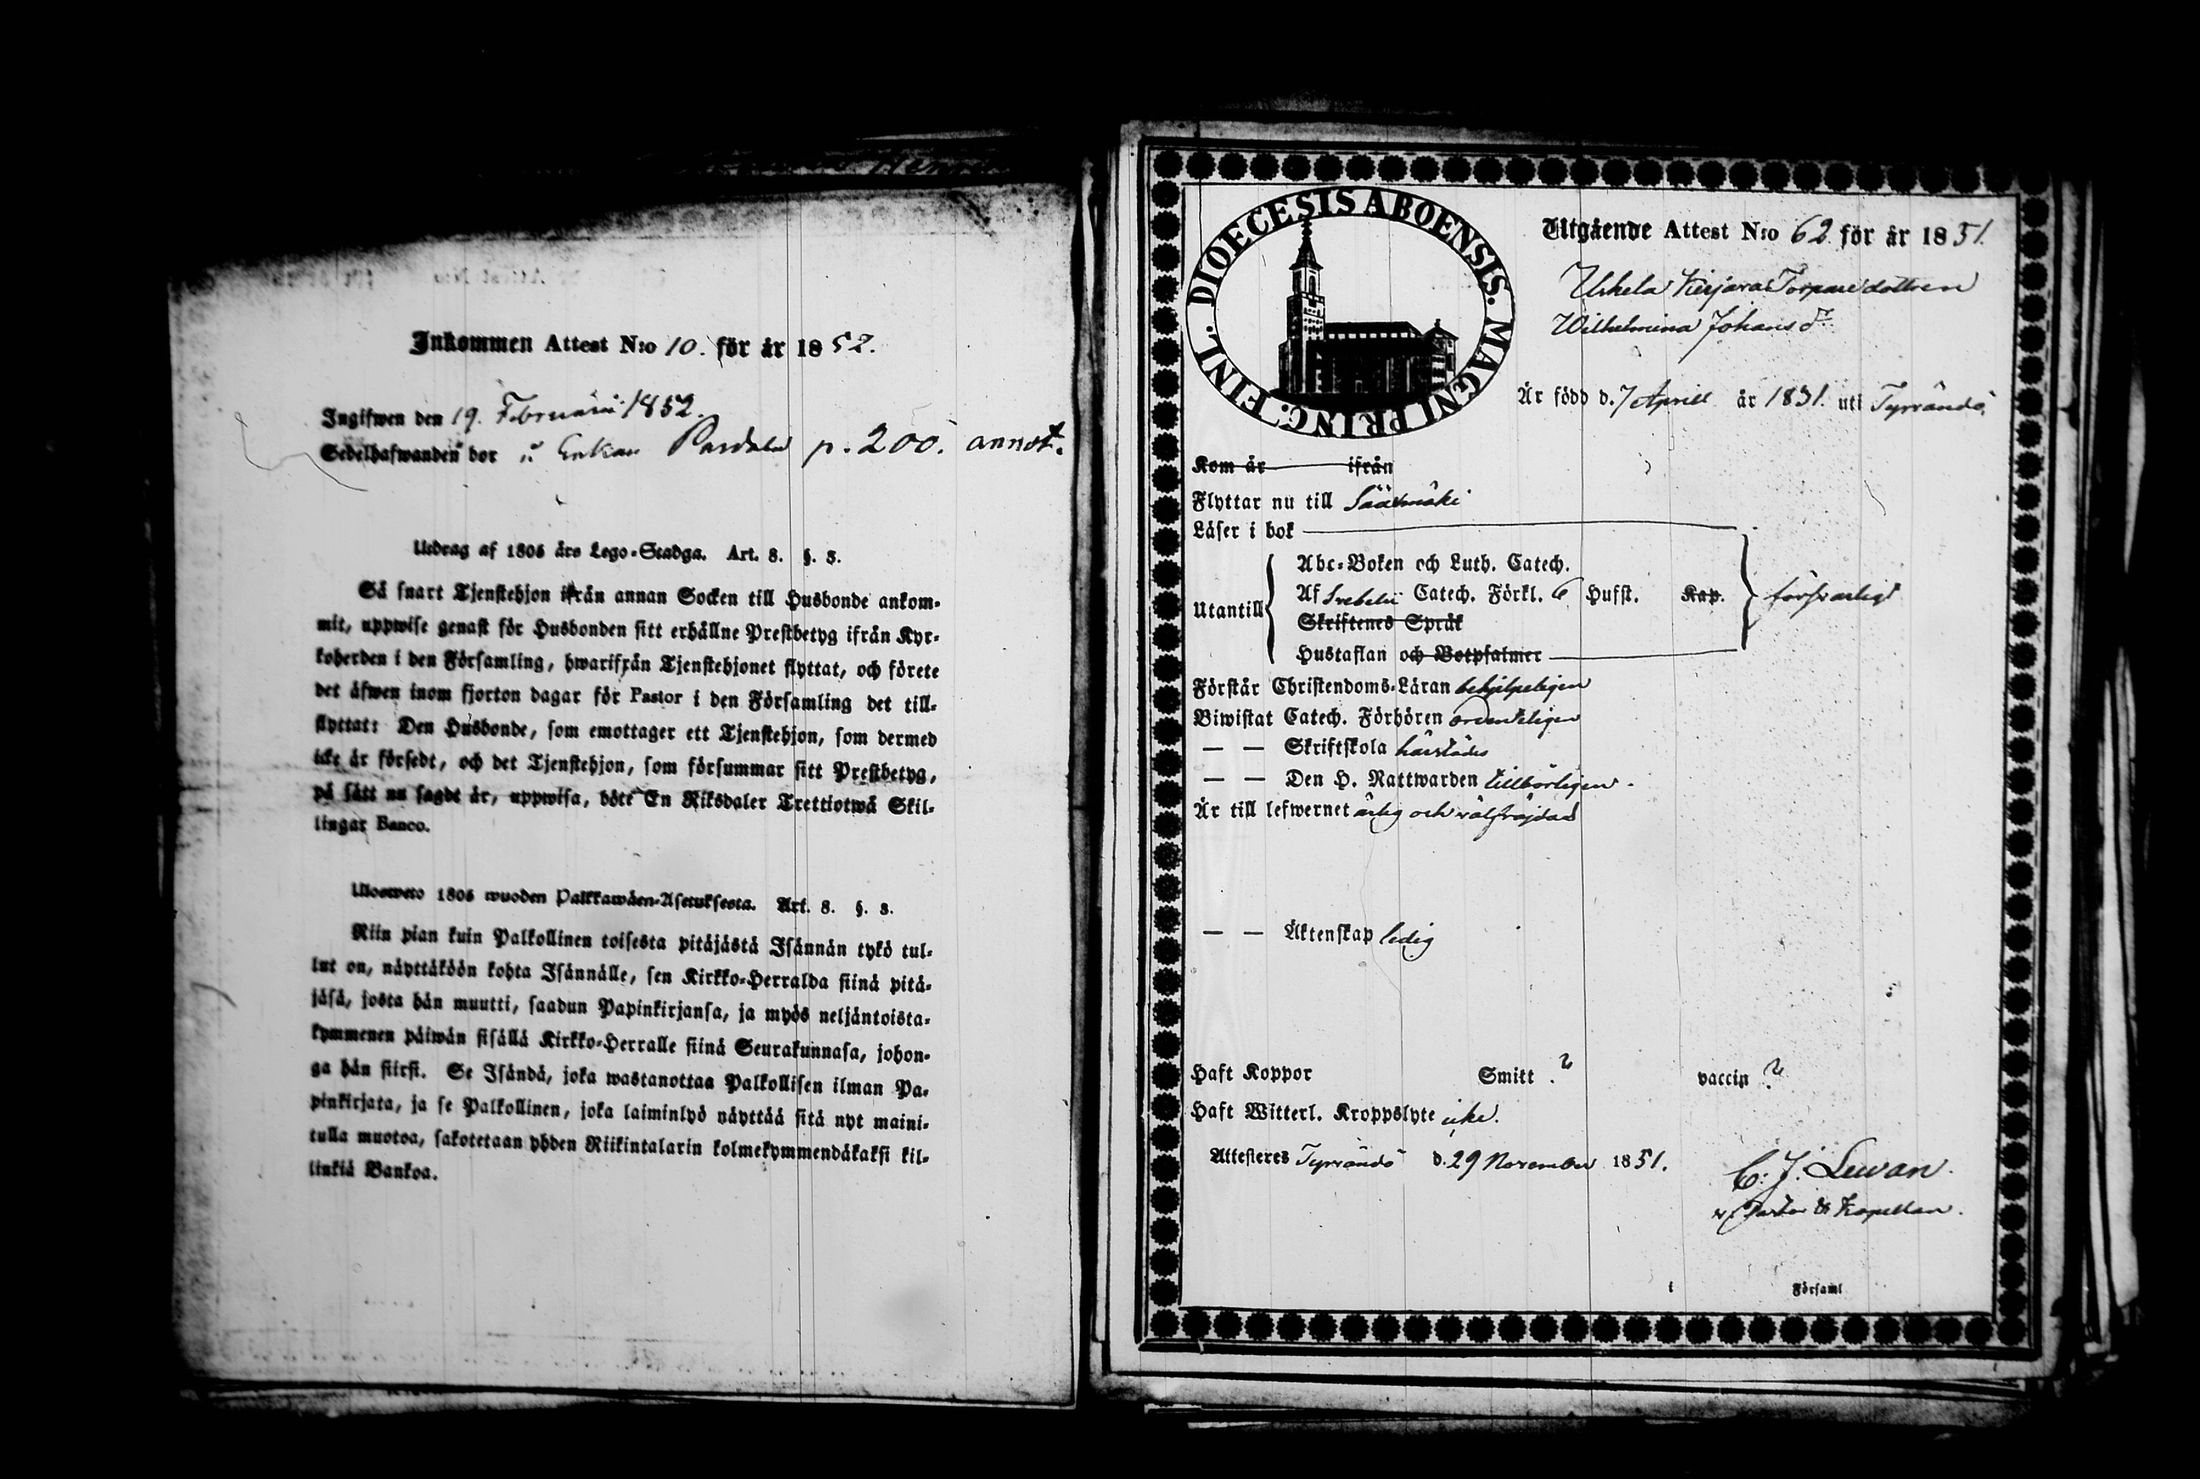 Inkommen Attest N:o 10. för år 1852.
Ingifwen den 19. Februarii 1852.
Sedelhafwanden bor i Enkan p. 200. annot.
Utdrag af 1805 års Lego-Stadga. Art. 8. §. 3.
Så snart Tjenstehjon ifrån annan Socken till Husbonde ankom-
mit, uppwise genast för Husbonden sitt erhållne Prestbetyg ifrån Kyr-
koherden i den Församling, hwarifrån Tjenstehjonet flyttat, och förete
det äfwen inom fjorton dagar för Pastor i den Församling det till-
flyttat: Den Husbonde, som emottager ett Tjenstehjon, som dermed
icke är försedt, och det Tjenstehjon, som försummar sitt Prestbetyg,
på sätt nu sagdt är, uppwisa, böte En Riksdaler Trettiotwå Skil-
lingar Banco.
Ulosweto 1805 wuoden Palkkawäen-Asetuksesta. Art. 8. §. 3.
Niin pian kuin Palkollinen toisesta pitäjästä Isännän tykö tul-
lut on, näyttäköön kohta Isännälle, sen Kirkko-Herralda siinä pitä-
jäsä, josta hän muutti, saadun Papinkirjansa, ja myös neljäntoista-
kymmenen päiwän sisällä Kirkko-Herralle siinä Seurakunnasa, johon-
ga hän siirsi. Se Isändä, joka wastanottaa Palkollisen ilman Pa-
pinkirjata, ja se Palkollinen, joka laiminlyö näyttää sitä nyt maini-
tulla muotoa, sakotetaan yhden Riikintalarin kolmekymmendäkaksi kil-
linkiä Bankoa.
DIOECESIS ABOENSIS. MAGNI PRINC. FINL.
Utgående Attest N:o 62 för år 1851.
Uskela Torparedottren
Wilhelmina Johansdr
Är född d. 7 April år 1831. uti Tyrvändö.
Kom år ifrån
Flyttar nu till Sääxmäki
Läser i bok
Utantill
Abc-Boken och Luth. Catech.
Af Svebelii Catech. Förkl. 6 Hufst. Kap.
Skriftenes Språk
Hustaflan och Botpsalmer
försvarligt
Förstår Christendoms-Läran behjelpeligen
Biwistat Catech. Förhören ordenteligen
— — Skriftskola härstädes
— — Den H. Nattwarden tillbörligen.
Är till lefwernet ärlig och välfräjdad
— — Äktenskap ledig
Haft Koppor Smitt ? vaccin ?
Haft Witterl. Kroppslyte icke.
Attesteres Tyrvändö d. 29 November 1851.
C. J. Lewan.
v. Pastor & Kapellan.
i Församl